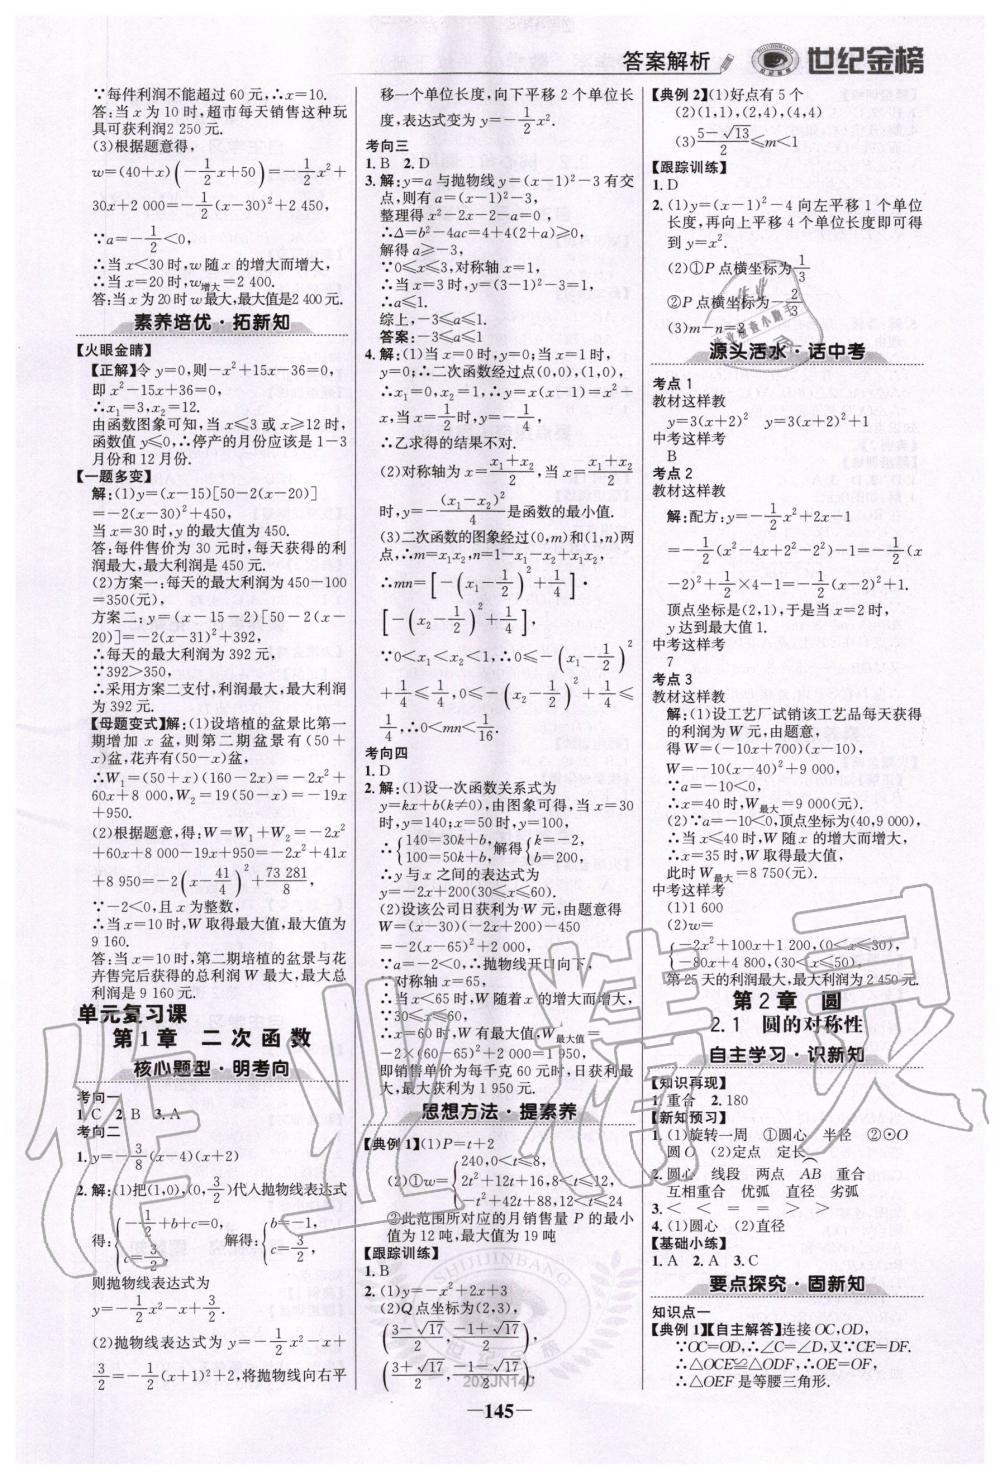 答案解析 世纪金榜
∵每件利润不能超过 60 元,∴x=10.
答:当 x 为 10 时,超市每天销售这种玩
具可获利润2 250 元.
(3)根据题意得,
w=(40+x)(-1/2x+50)=-1/2x²+
30x+2 000=-1/2(x-30)²+2 450,
∵a=-1/2<0,
∴当 x<30 时,w 随 x 的增大而增大,
∴当 x=20 时,w增大=2 400.
答:当 x 为20时 w最大,最大值是2 400元.
素养培优·拓新知
【火眼金睛】
【正解】令 y=0,则-x²+15x-36=0,
即 x²-15x+36=0,
∴x₁=3,x₂=12.
由函数图象可知,当 x≤3 或 x≥12 时,
函数值 y≤0,∴停产的月份应该是 1-3
月份和 12 月份.
【一题多变】
解:(1)y=(x-15)[50-2(x-20)]
=-2(x-30)²+450,
当 x=30 时,y 的最大值为 450.
答:每件售价为 30 元时,每天获得的利
润最大,最大利润是 450 元.
(2)方案一:每天的最大利润为 450-100
=350(元),
方案二:y=(x-15-2)[50-2(x-
20)]=-2(x-31)²+392,
∴每天的最大利润为 392 元,
∵392>350,
∴采用方案二支付,利润最大,最大利润
为 392 元.
【母题变式】解:(1)设培植的盆景比第一
期增加 x 盆,则第二期盆景有(50+
x)盆,花卉有(50-x)盆,
∴W₁=(50+x)(160-2x)=-2x²+
60x+8 000,W₂=19(50-x)=-19x
+950.
(2)根据题意,得:W=W₁+W₂=-2x²
+60x+8 000-19x+950=-2x²+41x
+8 950=-2(x-41/4)²+73 281/8,
∵-2<0,且 x 为整数,
∴当 x=10时,W 取得最大值,最大值为
9 160.
答:当 x=10 时,第二期培植的盆景与花
卉售完后获得的总利润 W 最大,最大总
利润是 9 160 元.
单元复习课
第1章 二次函数
核心题型·明考向
考向一
1.C 2.B 3.A
考向二
1.y=-3/8(x-4)(x+2)
2.解:(1)把(1,0),(0,3/2)代入抛物线表达式
得:{-1/2+b+c=0, c=3/2, 解得:{b=-1, c=3/2,
则抛物线表达式为
y=-1/2x²-x+3/2.
(2)抛物线表达式为 y=-1/2x²-x+
3/2=-1/2(x+1)²+2,将抛物线向右平
移一个单位长度,向下平移 2 个单位长
度,表达式变为 y=-1/2x².
考向三
1.B 2.D
3.解:y=a 与抛物线 y=(x-1)²-3 有交
点,则有 a=(x-1)²-3,
整理得 x²-2x-2-a=0 ,
∴Δ=b²-4ac=4+4(2+a)≥0,
解得 a≥-3,
∵0≤x≤3,对称轴 x=1,
∴当 x=3 时,y=(3-1)²-3=1,
∴a≤1.
综上,-3≤a≤1.
答案:-3≤a≤1
4.解:(1)当 x=0 时,y=0;当 x=1 时,
y=0;∴二次函数经过点(0,0),(1,0),
∴x₁=0,x₂=1,∴y=x(x-1)=x²-
x,当 x=1/2时,y=-1/4,
∴乙求得的结果不对.
(2)对称轴为 x=(x₁+x₂)/2,当 x=(x₁+x₂)/2
时,y=-(x₁-x₂)²/4 是函数的最小值.
(3)二次函数的图象经过(0,m)和(1,n)两
点,∴m=x₁x₂,n=1-x₁-x₂+x₁x₂,
∴mn=[-(x₁-1/2)²+1/4]•
[-(x₂-1/2)²+1/4],
∵0<x₁<x₂<1,∴0≤-(x₁-1/2)²
+1/4≤1/4,0≤-(x₂-1/2)²+1/4≤
1/4,∴0<mn<1/16.
考向四
1.D
2.解:(1)设一次函数关系式为
y=kx+b(k≠0),由图象可得,当 x=30
时,y=140;x=50 时,y=100,
∴{140=30k+b, 100=50k+b, 解得{k=-2, b=200,
∴y 与 x 之间的表达式为
y=-2x+200(30≤x≤60).
(2)设该公司日获利为 W 元,由题意得
W=(x-30)(-2x+200)-450
=-2(x-65)²+2 000,
∵a=-2<0,∴抛物线开口向下,
∵对称轴 x=65,
∴当 x<65 时,W 随着 x 的增大而增大,
∵30≤x≤60,
∴x=60 时,W 有最大值,W最大值
=-2×(60-65)²+2 000=1 950.
即销售单价为每千克 60 元时,日获利最
大,最大获利为 1 950 元.
思想方法·提素养
【典例 1】(1)P=t+2
(2)①w={240,0<t≤8, 2t²+12t+16,8<t≤12, -t²+42t+88,12<t≤24
②此范围所对应的月销售量 P 的最小
值为 12 吨,最大值为 19 吨
【跟踪训练】
1.B
2.(1)y=-x²+2x+3
(2)Q点坐标为(2,3),
((3-√17)/2,(-1+√17)/2),
((3+√17)/2,(-1-√17)/2)
【典例 2】(1)好点有 5 个
(2)(1,1),(2,4),(4,4)
(3)(5-√13)/2≤m<1
【跟踪训练】
1.D
2.(1)y=(x-1)²-4 向左平移 1 个单位
长度,再向上平移 4 个单位长度即可得
到 y=x².
(2)①P 点横坐标为1/3
②P 点横坐标为-2/3
(3)m-n=3
源头活水·话中考
考点 1
教材这样教
y=3(x+2)² y=3(x+2)²+1
中考这样考
B
考点 2
教材这样教
解:配方:y=-1/2x²+2x-1
=-1/2(x²-4x+2²-2²)-1=-1/2(x
-2)²+1/2×4-1=-1/2(x-2)²+1.
顶点坐标是(2,1),于是当 x=2 时,
y 达到最大值 1.
中考这样考
7
考点 3
教材这样教
解:(1)设工艺厂试销该工艺品每天获得
的利润为 W 元,由题意,
得 W=(-10x+700)(x-10),
W=-10(x-40)²+9 000,
∴x=40 时,W最大=9 000(元).
(2)∵a=-10<0,顶点坐标为(40,9 000),
∴当 x≤40 时,W 随 x 的增大而增大,
∴x=35 时,W 取得最大值,
此时 W最大=8 750(元).
中考这样考
(1)1 600
(2)w=
{-2x²+100x+1 200,(0<x≤30), -80x+4 800,(30<x≤50).
第 25 天的利润最大,最大利润为 2 450 元.
第2章 圆
2.1 圆的对称性
自主学习·识新知
【知识再现】
1.重合 2.180
【新知预习】
1.(1)旋转一周 ①圆心 半径 ②⊙O
圆 O (2)定点 定长
2.圆心 线段 两点 AB 重合
互相重合 优弧 直径 劣弧
3.< < = = > >
4.(1)圆心 (2)直径
【基础小练】
1.A 2.A 3.C
要点探究·固新知
知识点一
【典例 1】【自主解答】连接 OC,OD,
∵OC=OD,∴∠C=∠D,又∵CE=DF.
∴△OCE≌△ODF,∴OE=OF,
∴△OEF 是等腰三角形.
—145—
作业精灵
SHIJIJINBANG